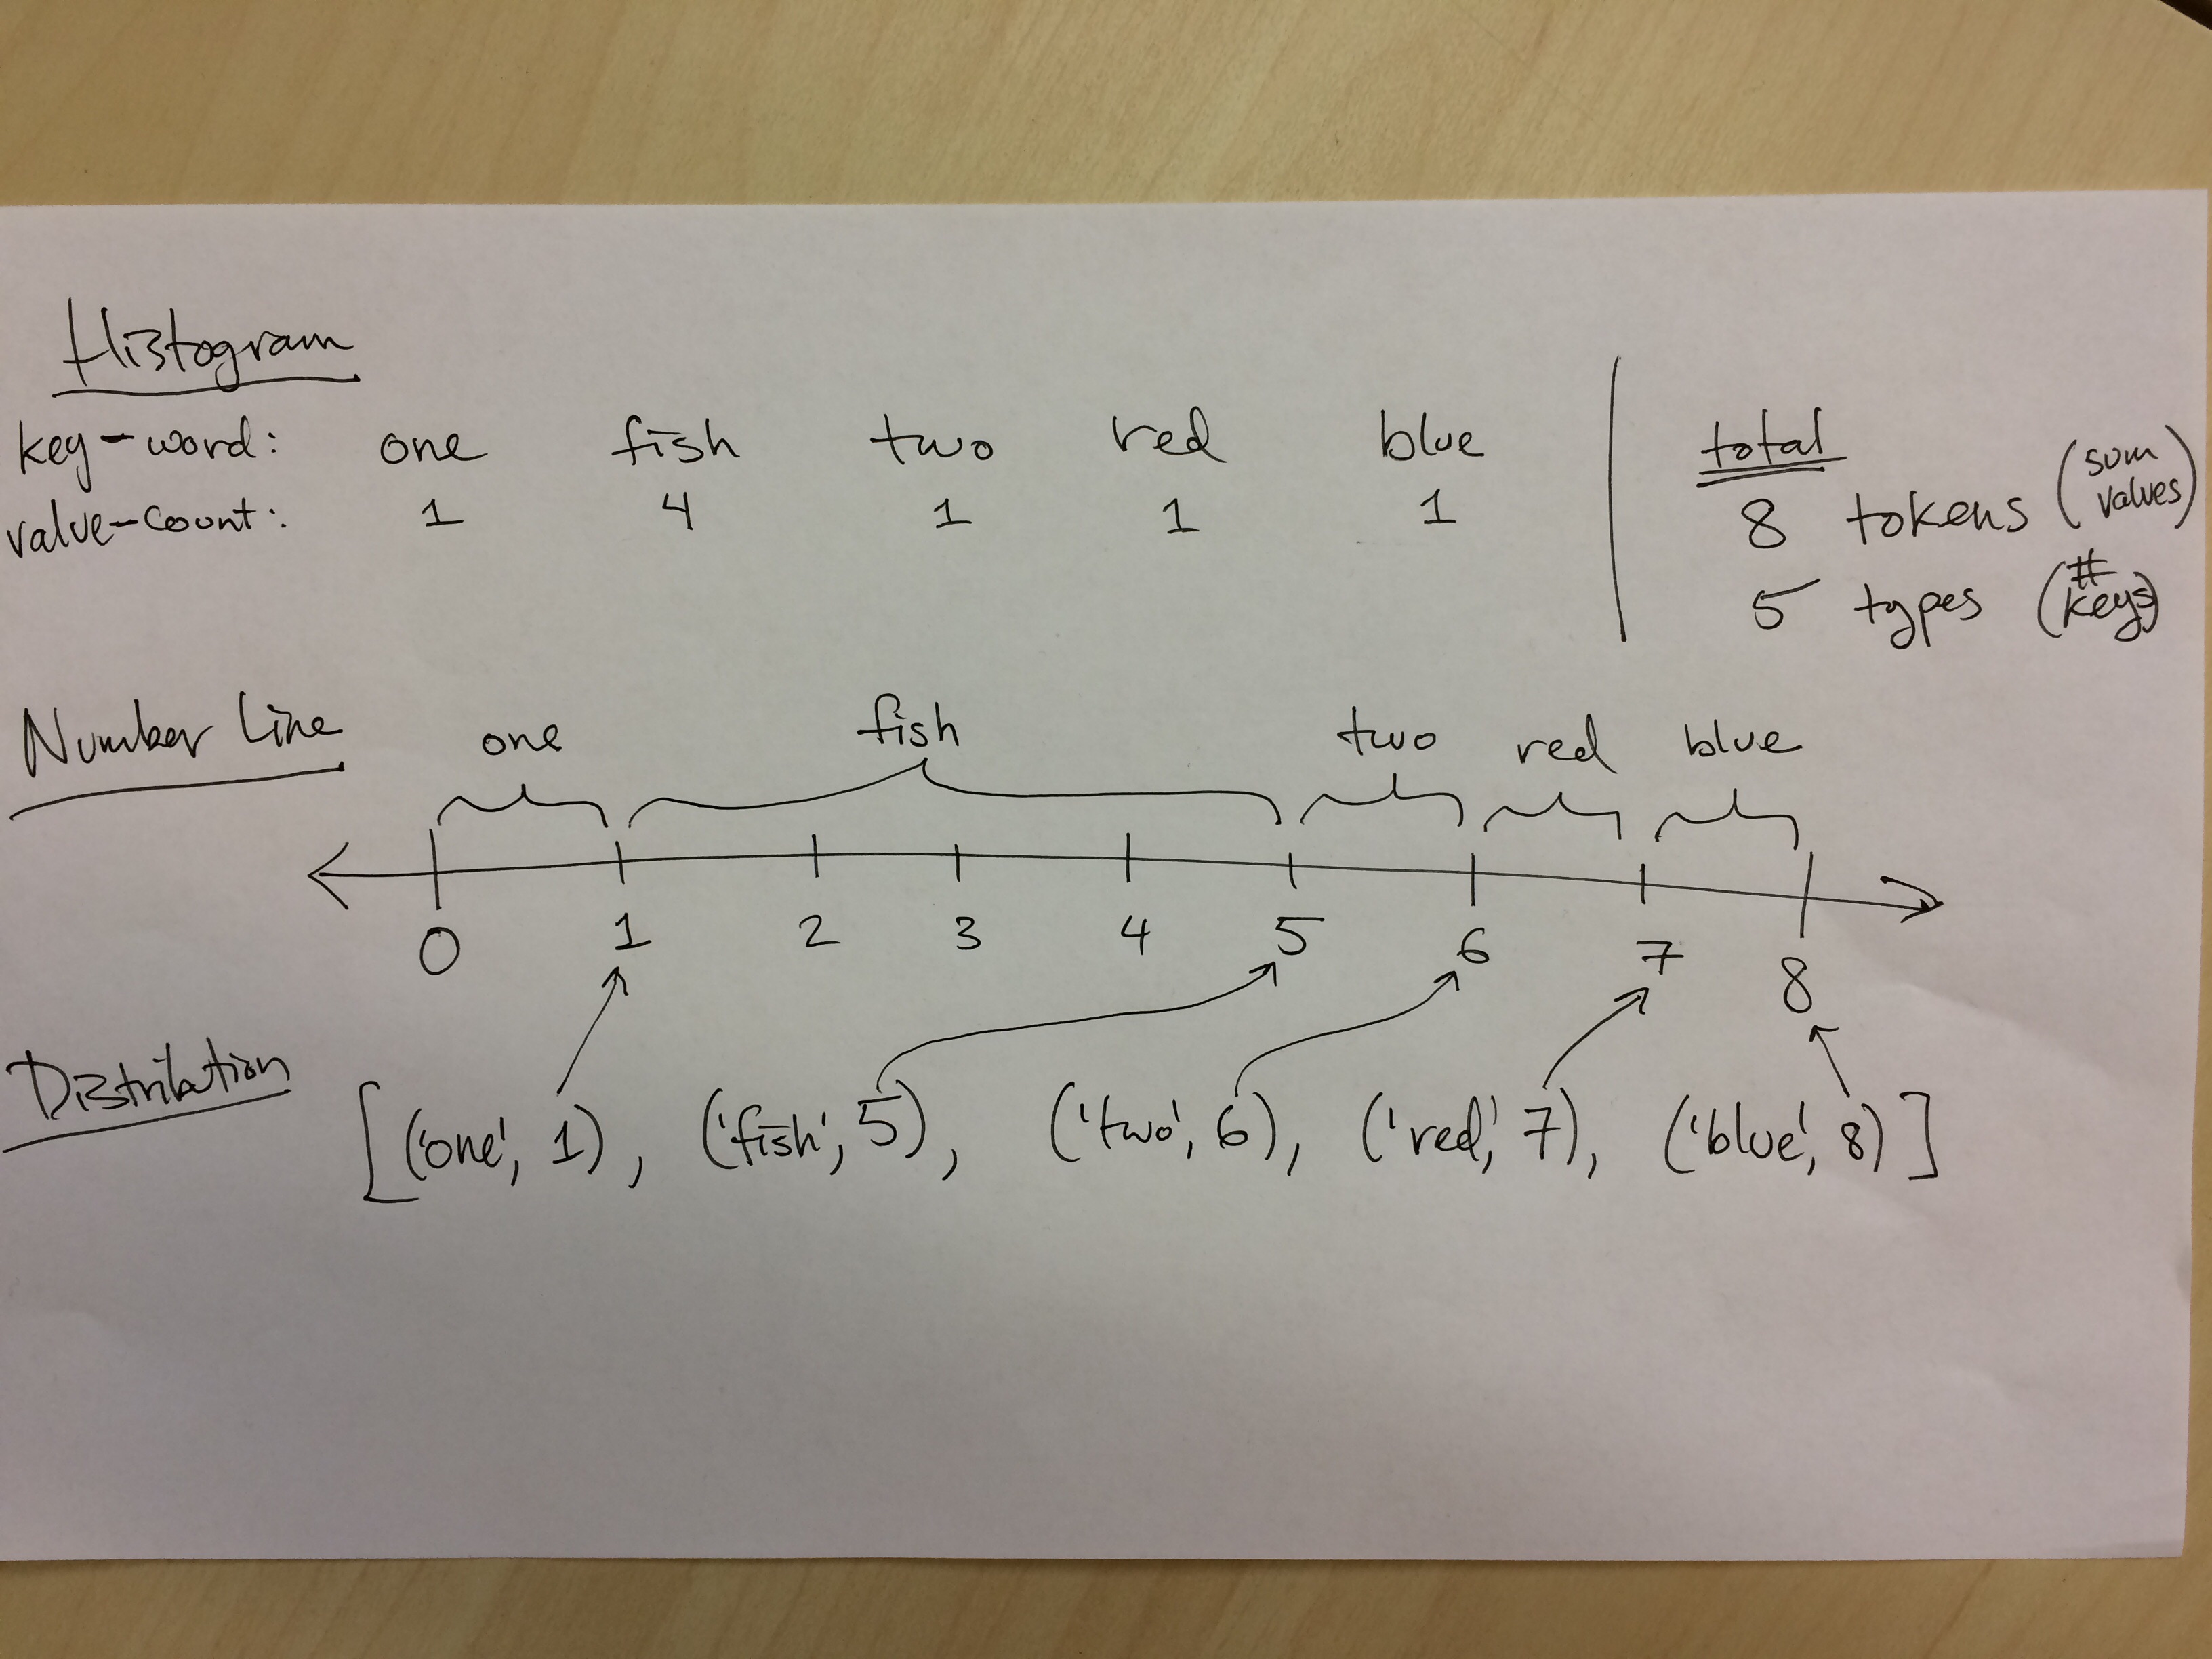 Histogram
key-word: one fish two red blue
value-count: 1 4 1 1 1
total
8 tokens (sum values)
5 types (# keys)
Number Line
one fish two red blue
0 1 2 3 4 5 6 7 8
Distribution
[('one', 1), ('fish', 5), ('two', 6), ('red', 7), ('blue', 8)]